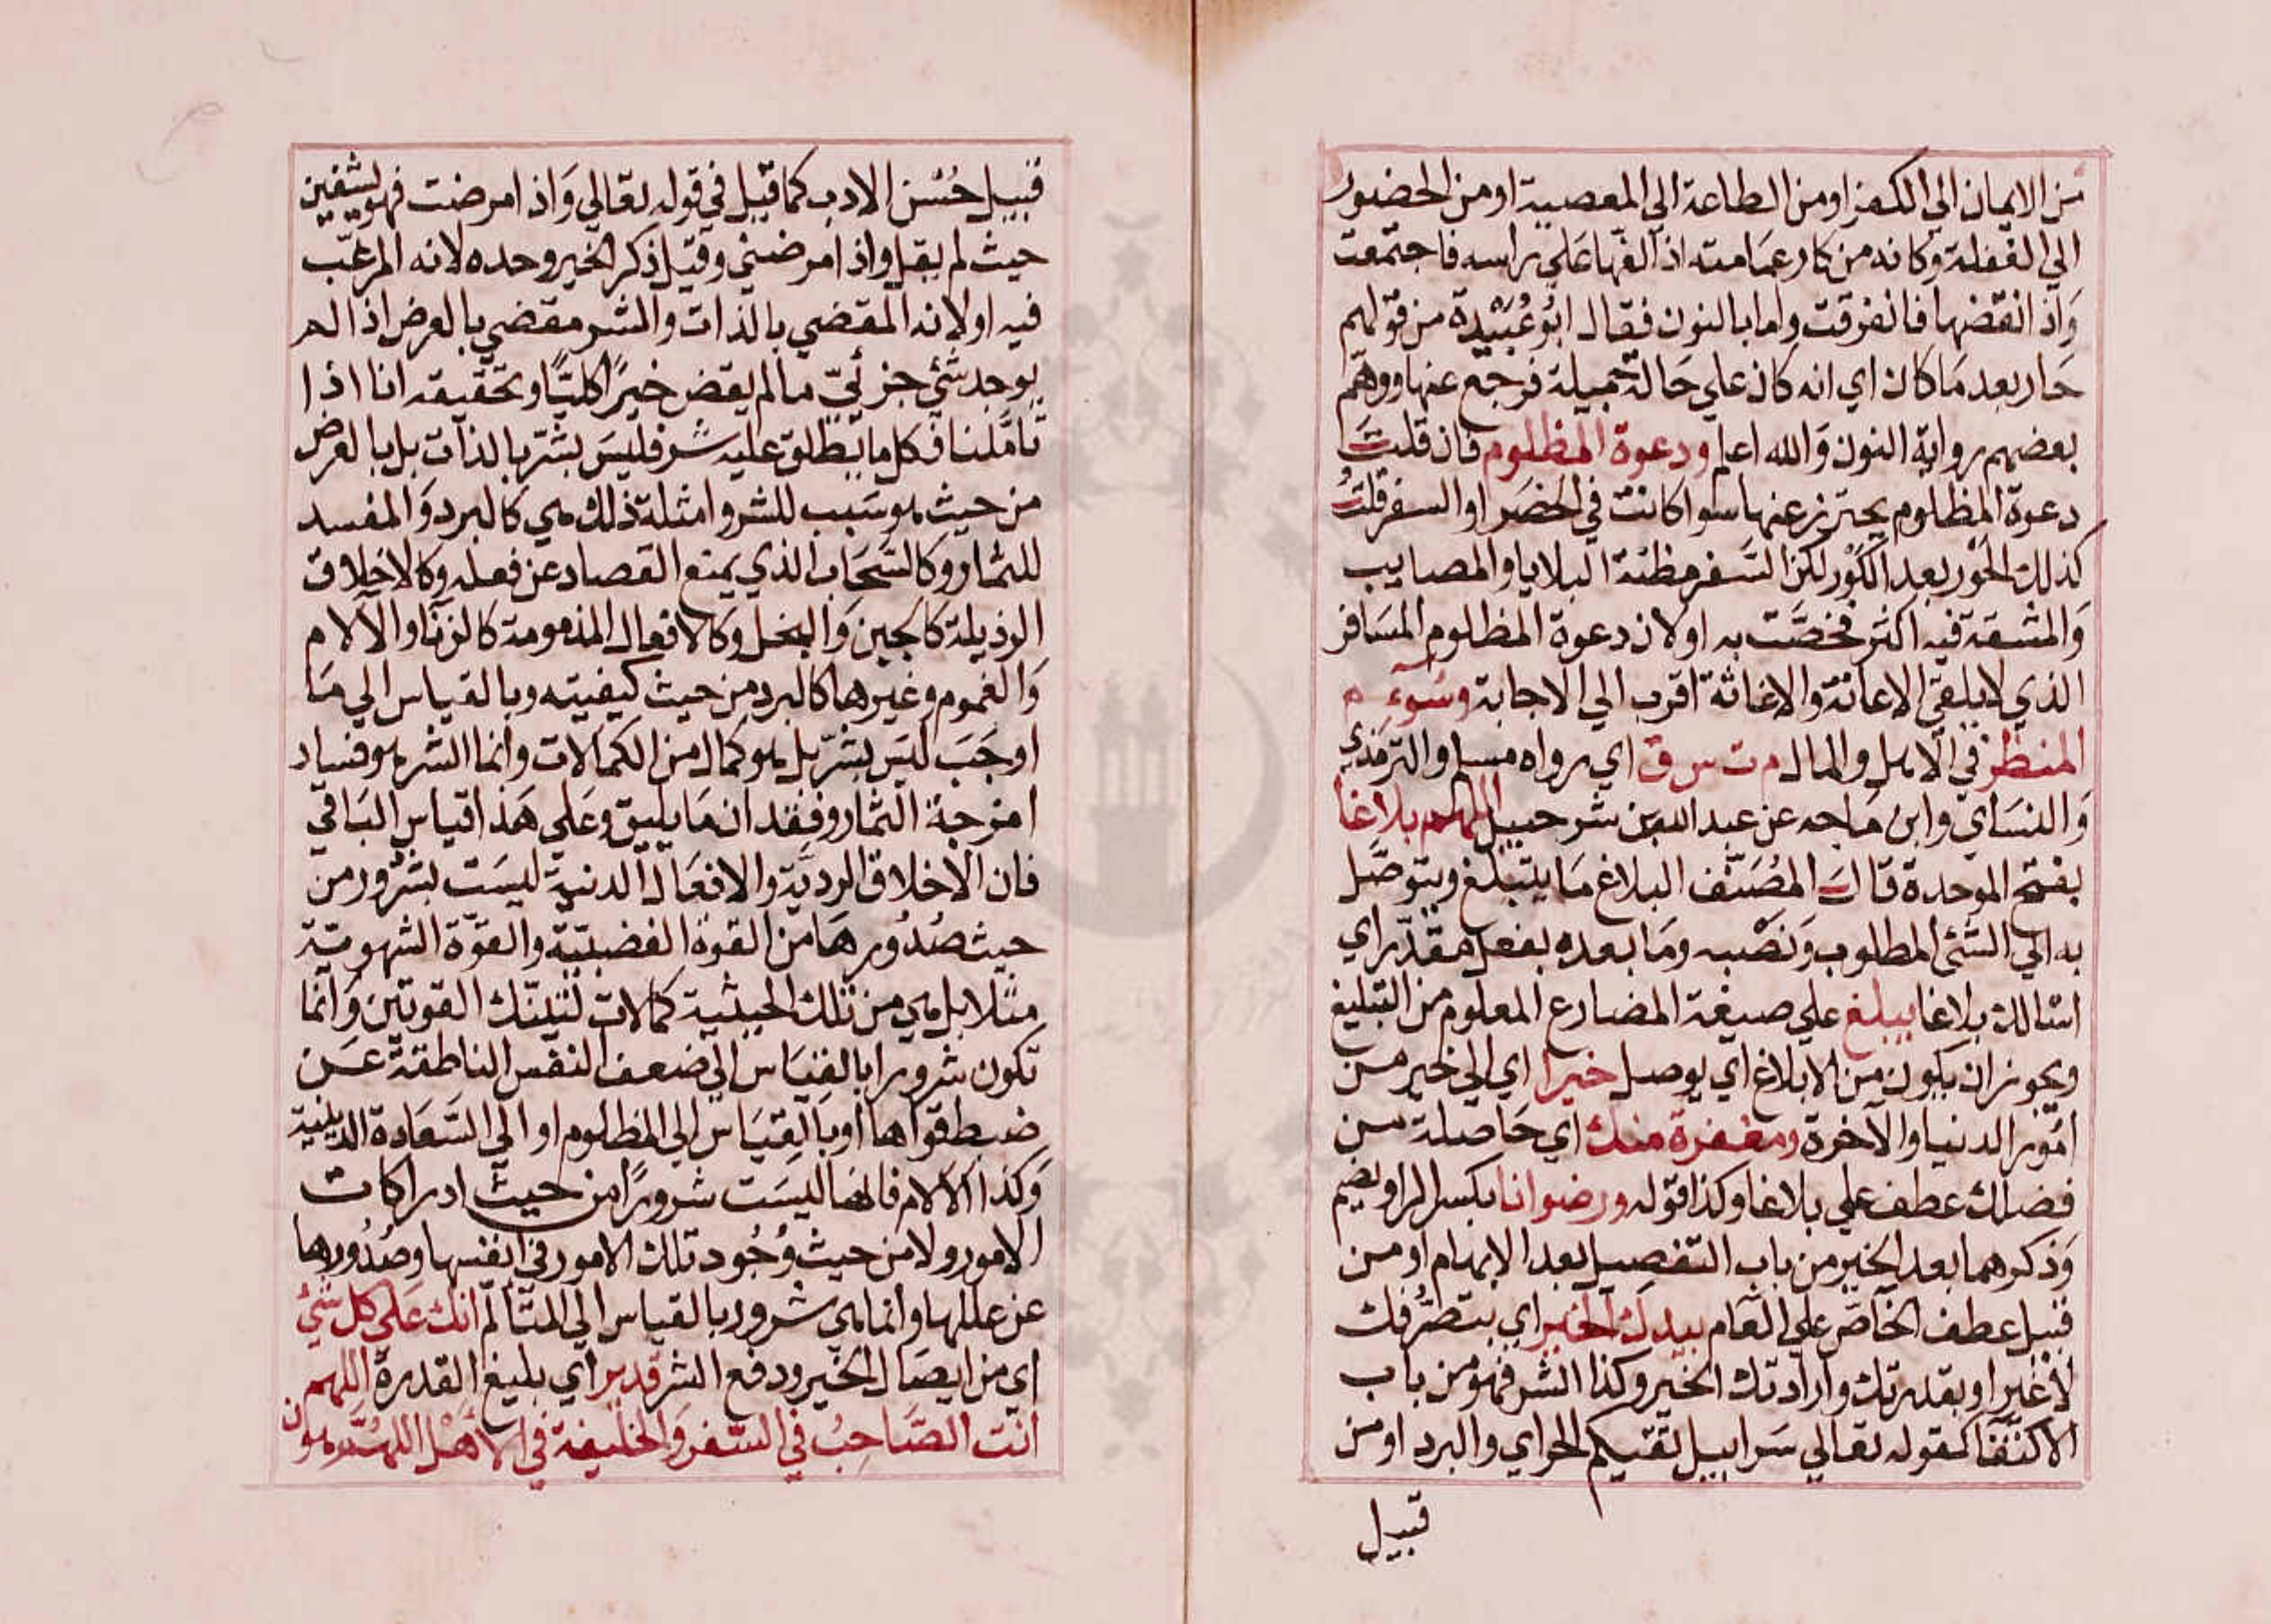 من الايمان الي الكفر او من الطاعة الي المعصية او من الحضور
الي الغفلة وكانه من كار عمامته اذا لفها علي راسه فاجتمعت
واذ انقضها فانفرقت واما بالنون فقال ابو عبيدة من قولهم
حار بعد ما كان اي انه كان علي حالة جميلة فرجع عنها ووهم
بعضهم رواية النون والله اعلم ودعوة المظلوم فان قلت
دعوة المظلوم يحترز عنها سوا كانت في الحضر او السفر قلت
كذلك الحور بعد الكور لكن السفر مظنة البلايا والمصايب
والمشقة فيه اكثر فخصت به او لان دعوة المظلوم المسافر
الذي لا يلقي الاعانة والاغاثة اقرب الي الاجابة وسوء
المنظر في الاهل والمال م ت س ق اي رواه مسلم والترمذي
والنساي وابن ماجه عن عبد الله بن شرحبيل اللهم بلاغا
بفتح الموحدة قال المصنف البلاغ ما يتبلغ ويتوصل
به الي الشئ المطلوب ونصبه وما بعده بفعل مقدر اي
اسالك بلاغا يبلغ علي صيغة المضارع المعلوم من التبليغ
ويجوز ان يكون من الابلاغ اي يوصل خيرا اي الي خير من
امور الدنيا والآخرة ومغفرة منك اي حاصلة من
فضلك عطف علي بلاغا وكذا قوله ورضوانا بكسر الرا ويضم
وذكرهما بعد الخير من باب التفصيل بعد الابهام او من
قبيل عطف الخاص علي العام بيدك الخير اي بتصرفك
لا غير او بقدرتك وارادتك الخير وكذا الشر فهو من باب
الاكتفا كقوله تعالي سرابيل تقيكم الحر اي والبرد او من
قبيل
قبيل حسن الادب كما قيل في قوله تعالي واذ امرضت فهو يشفين
حيث لم يقل واذ امرضني وقيل ذكر الخير وحده لانه المرغب
فيه او لانه المقضي بالذات والشر مقضي بالعرض اذ الم
يوجد شئ جزئي ما لم يقض خيرا كليا وتحقيقه انا اذا
تاملنا فكل ما يطلق عليه شر فليس بشر بالذات بل بالعرض
من حيث هو سبب للشر وامثلة ذلك هي كالبرد والمفسد
للثمار وكالسحاب الذي يمنع القصاد عن فعله وكالاخلاق
الرذيلة كالجبن والبخل وكالافعال المذمومة كالزنا والآلام
والغموم وغيرها كالبرد من حيث كيفيته وبالقياس الي ما
اوجب ليس بشر بل هو كمال من الكمالات وانما الشر هو فساد
امزجة الثمار وفقدان ما يليق وعلي هذا قياس الباقي
فان الاخلاق الردية والافعال الدنية ليست بشرور من
حيث صدورها من القوة الغضبية والقوة الشهوية
مثلا بل هي من تلك الحيثية كمالات لتينك القوتين وانما
تكون شرورا بالقياس الي ضعف النفس الناطقة عن
ضبط قواها او بالقياس الي المظلوم او الي السعادة الدينية
وكذا الالام فانها ليست شرورا من حيث ادراكات
الامور ولا من حيث وجود تلك الامور في انفسها وصدورها
عن عللها وانما هي شرور بالقياس الي المتالم انك علي كل شئ
اي من ايصال الخير ودفع الشر قدير اي بليغ القدرة اللهم
انت الصاحب في السفر والخليفة في الاهل اللهم هون